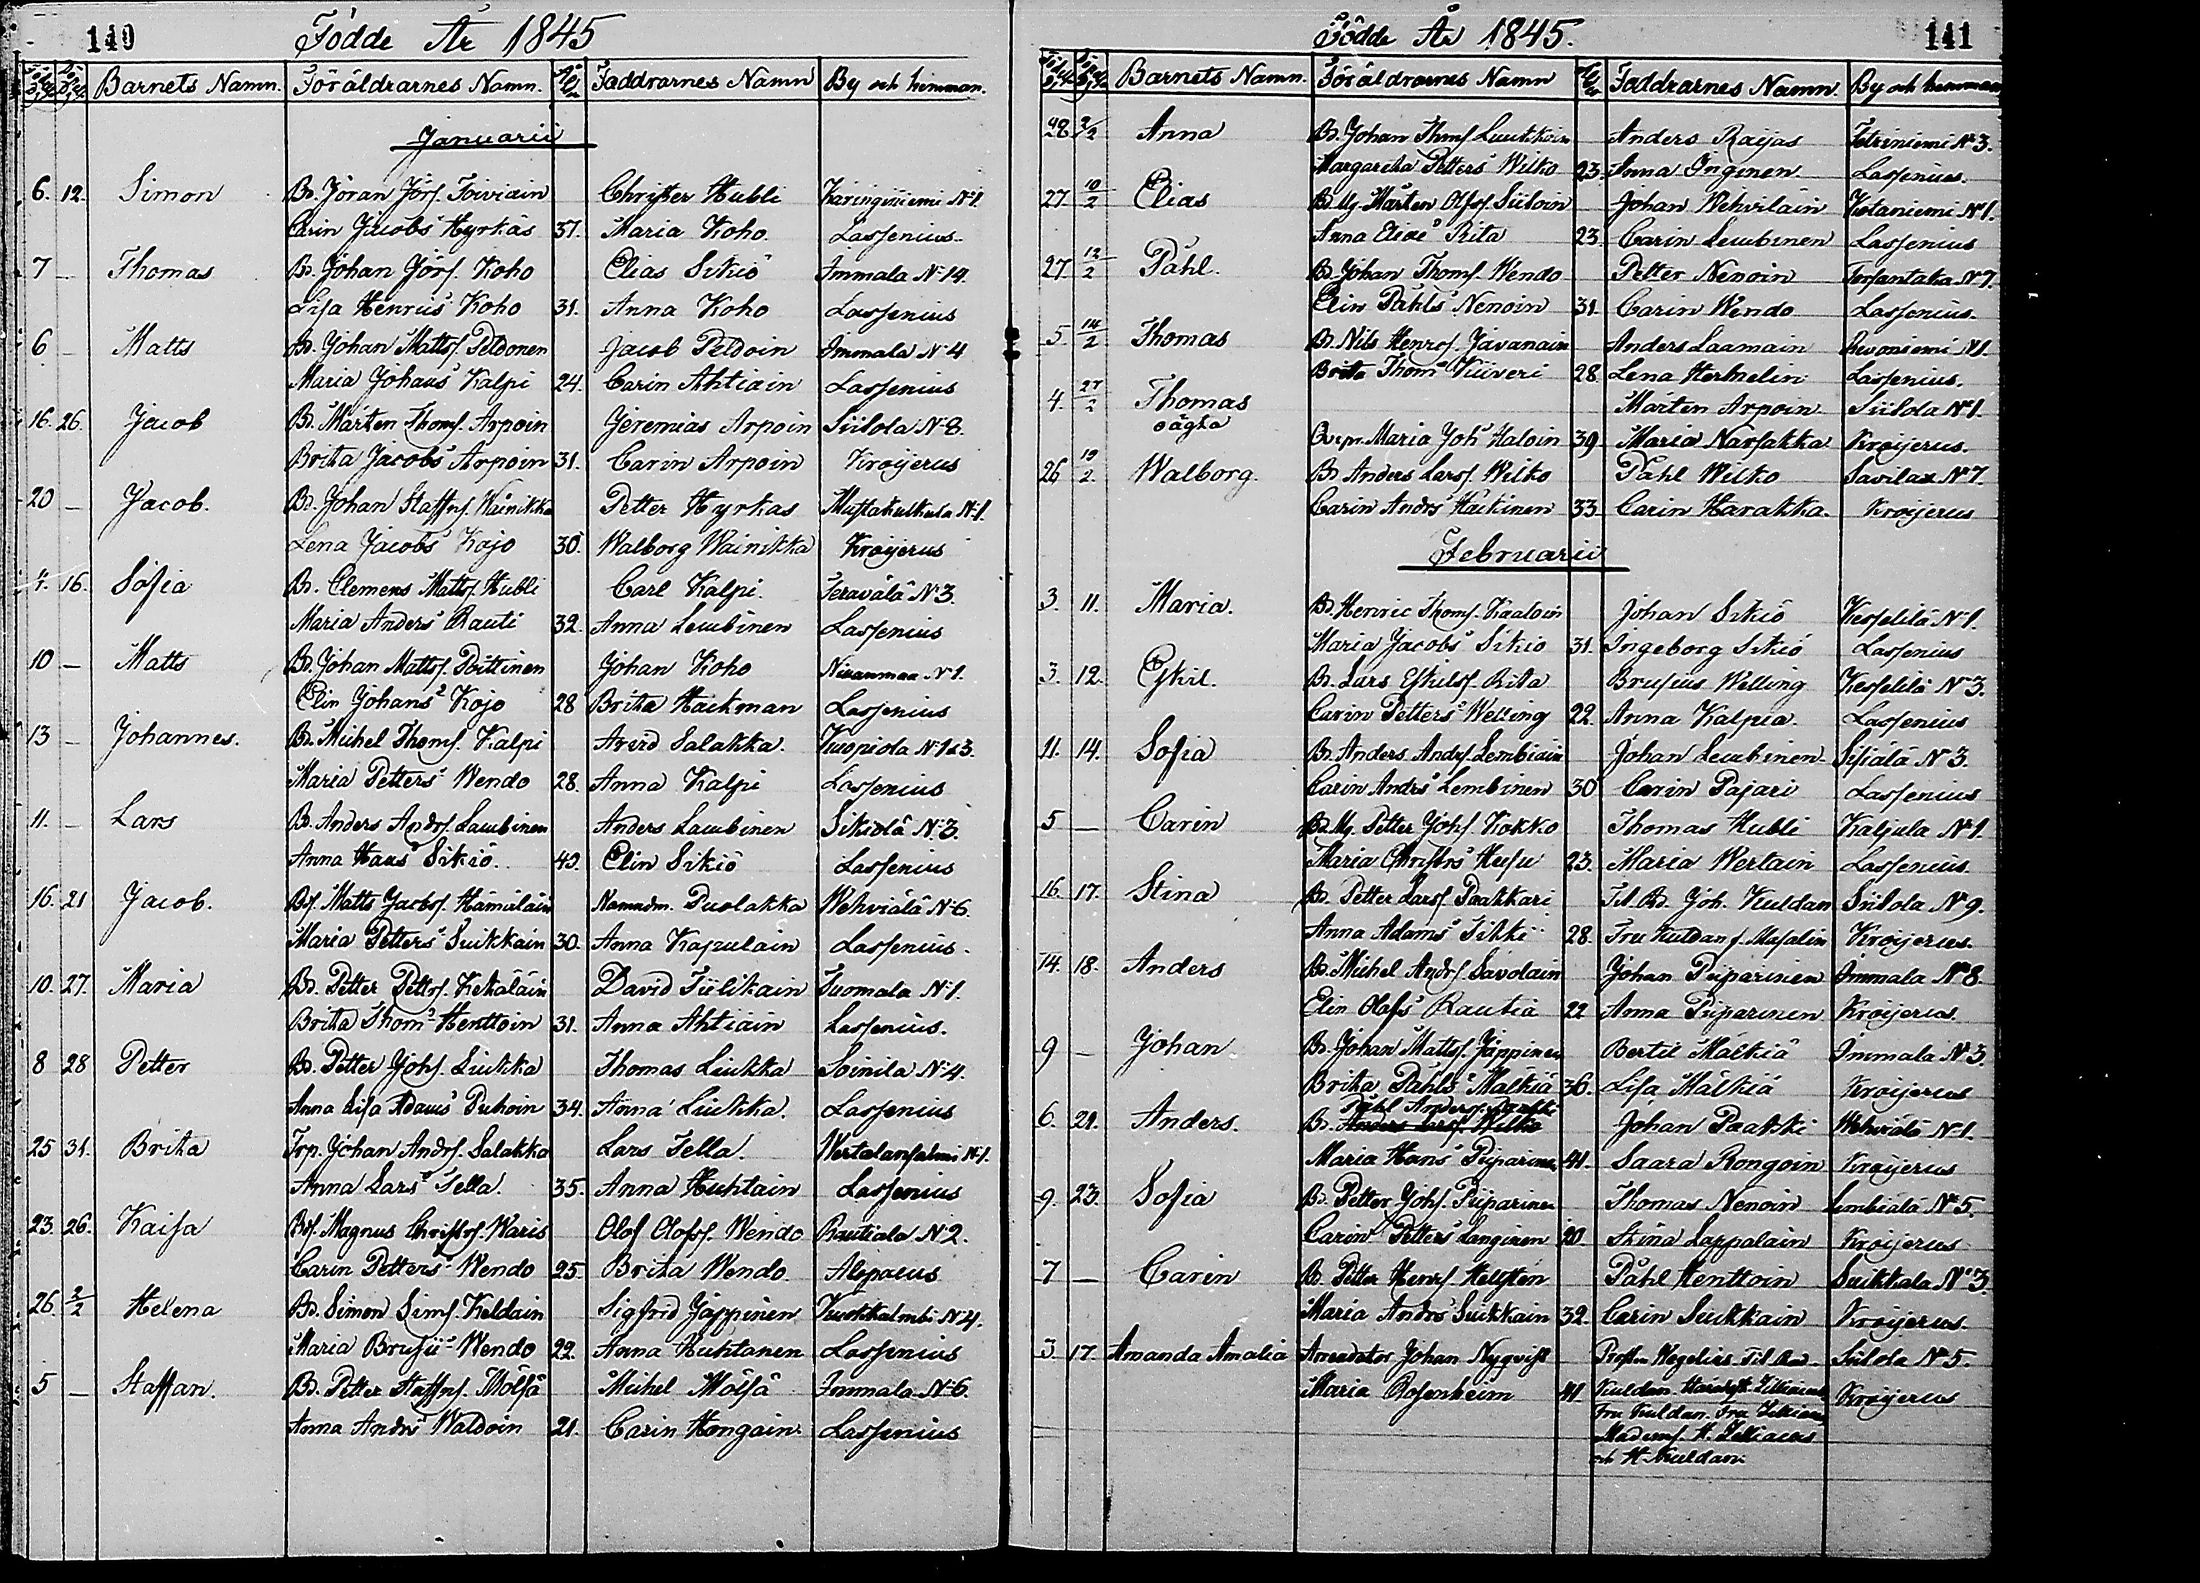 140 Födde År 1845
Barnets Namn. Föräldrarnes Namn. Faddrarnes Namn By och hemman.
Januarii
6. 12. Simon Bd. Jöran Jörs. Toiviain Christer Hubli Karinginiemi N:1.
Carin Jacobs Hyrkäs 37. Maria Koho. Lassenius
7 — Thomas Bd. Johan Jörs. Koho Elias Sikiö Immala N:14.
Lisa Henrics Koho 31. Anna Koho Lassenius
6 — Matts Bd. Johan Mattss. Peldonen Jacob Peldoin Immala N:4
Maria Johans Kalpi 24. Carin Ahtiain Lassenius
16. 26. Jacob B. Mårten Thoms. Arpoin Jeremias Arpoin Siitola N:8.
Brita Jacobs Arpoin 31. Carin Arpoin Kroijerus
20 — Jacob. Bd. Johan Staffns. Wainikka Petter Hyrkas Mustakulkula N:1.
Lena Jacobs Kojo 30. Walborg Wainikka Kroijerus
4. 16. Sofia Bd. Clemens Mattss. Hubli Carl Kalpi. Terävälä N:3.
Maria Anders Rauti 32. Anna Lembinen Lassenius
10 — Matts Bd. Johan Mattss. Poittinen Johan Koho N:1.
Elin Johans Kojo 28 Brita Hackman Lassenius
13 — Johannes. Bd. Michel Thoms. Kalpi Arvid Salakka. Kuopiola N:1&3.
Maria Petters Wendo 28. Anna Kalpi Lassenius
11. — Lars B. Anders Andrs. Lembinen Anders Lembinen Sikiölä N:3.
Anna Hans Sikiö. 49. Elin Sikiö Lassenius
16. 21 Jacob. Bs. Matts Jacobs. Hämäläin Nämndm. Puolakka Wehviälä N:6.
Maria Petters Suikkain 30. Anna Kapulain Lassenius.
10. 27. Maria Bd. Petter Petts. Kekäläin David Tiilikain Tuomala N:1.
Brita Thoms Henttoin 31. Anna Ahtiain Lassenius.
8 28 Petter Bd. Petter Johs. Liukka Thomas Liukka Soinila N:4.
Anna Lisa Adams Puhoin 34. Anna Liukka. Lassenius
25 31. Brita Torp. Johan Andrs. Salakka Lars Tella. N:1.
Anna Lars Tella. 35. Anna Huhtain Lassenius
23. 26. Kaisa Bs. Magnus Christers. Waris Olof Olofs. Wendo Rautiala N:2.
Carin Petters Wendo 25. Brita Wendo. Alopaeus
26. 2/2 Helena Bd. Simon Sims. Keldain Sigfrid Jäppinen Kuokkalmbi N:4.
Maria Brusii Wendo 22. Anna Huhtanen Lassenius
5 — Staffan. Bd. Petter Staffns. Mölsä Michel Mölsä Immala N:6.
Anna Andrs Waldoin 21. Carin Hongain. Lassenius
141
Födde År 1845.
Barnets Namn. Föräldrarnes Namn Faddrarnes Namn. By och hemman
28 2/2 Anna Bd. Johan Thoms. Luukkoin Anders Raijas Tetriniemi N:3.
Margaretha Petters Wilko 23. Anna Inginen Lassenius.
27 10/2 Elias Bd. Mg. Mårten Olofs. Siitoin Johan Wehvilain Kotaniemi N:1.
Anna Elias Rita 23 Carin Lembinen Lassenius
27 12/2 Påhl. Bd. Johan Thoms. Wendo Petter Nenoin Torsantaka N:7.
Elin Påhls Nenoin 31. Carin Wendo Lassenius.
5 14/2 Thomas Bd. Nils Henrs. Javanain Anders Laamain N:1.
Brita Thoms Kiiveri 28. Lena Hermelin Lassenius.
4. 27/2 Thomas Mårten Arpoin Siitola N:1.
oägta Qvspr. Maria Joh. Haloin 39 Maria Narsakka Kroijerus.
26 19/2. Walborg. Bd. Anders Larss. Wilko Påhl Wilko Savilax N:7.
Carin Andrs Häkinen 33. Carin Harakka. Kroijerus
Februarii
3. 11. Maria. Bd. Henric Thoms. Kaaloin Johan Sikiö Kesselilä N:1.
Maria Jacobs Sikiö 31. Ingeborg Sikiö Lassenius
3. 12. Eskil. B. Lars Eskilss. Rita Brusius Welling Kesselilä N:3.
Carin Petters Welling 22. Anna Kalpia. Lassenius
11. 14. Sofia Bd. Anders Andrs. Lembiain Johan Lembinen Sisiälä N:3.
Carin Andrs Lembinen 30 Carin Pajari Lassenius
5 — Carin Bd. Mg. Petter Johs. Kokko Thomas Hubli Kaljula N:1.
Maria Christrs Husu 23. Maria Wertain Lassenius.
16. 17. Stina Bd. Petter Larss. Paakkari Tit. Rd. Joh. Kuldan Siitola N:9.
Anna Adams Tikki 28. Fru Kuldan f. Masalin Kroijerus.
14. 18. Anders Bd. Michel Andrs. Savolain Johan Piiparinen Immala N:8.
Elin Olofs Rautia 22 Anna Piiparinen Kroijerus.
9 — Johan Bd. Johan Mattss. Jäppinen Bertil Mälkiä Immala N:3.
Brita Påhls Mälkiä 36. Lisa Mälkiä Kroijerus
Påhl Anderss. Paakki
6. 21. Anders. B. Anders Larss. Wilko Johan Paakki Wehviälä N:1.
Maria Hans Piiparinen 41. Saara Rongoin Kroijerus
9. 23. Sofia Bd. Petter Johs. Piiparinen Thomas Nenoin Lembiälä N:5.
Carin Petters Langinen 20. Stina Lappalain Kroijerus
7 — Carin Bd. Petter Henrs. Hellsten Påhl Henttoin Suikkala N:3.
Maria Andrs Suikkain 32. Carin Suikkain Kroijerus.
3 17. Amanda Amalia Arendator Johan Nyqvist Prosten Wegelius Tit. Råd. Siitola N:5.
Maria Rosenheim 41. Kuldan Kroijerus
Fru Kuldan. Fru
och H. Kuldan.